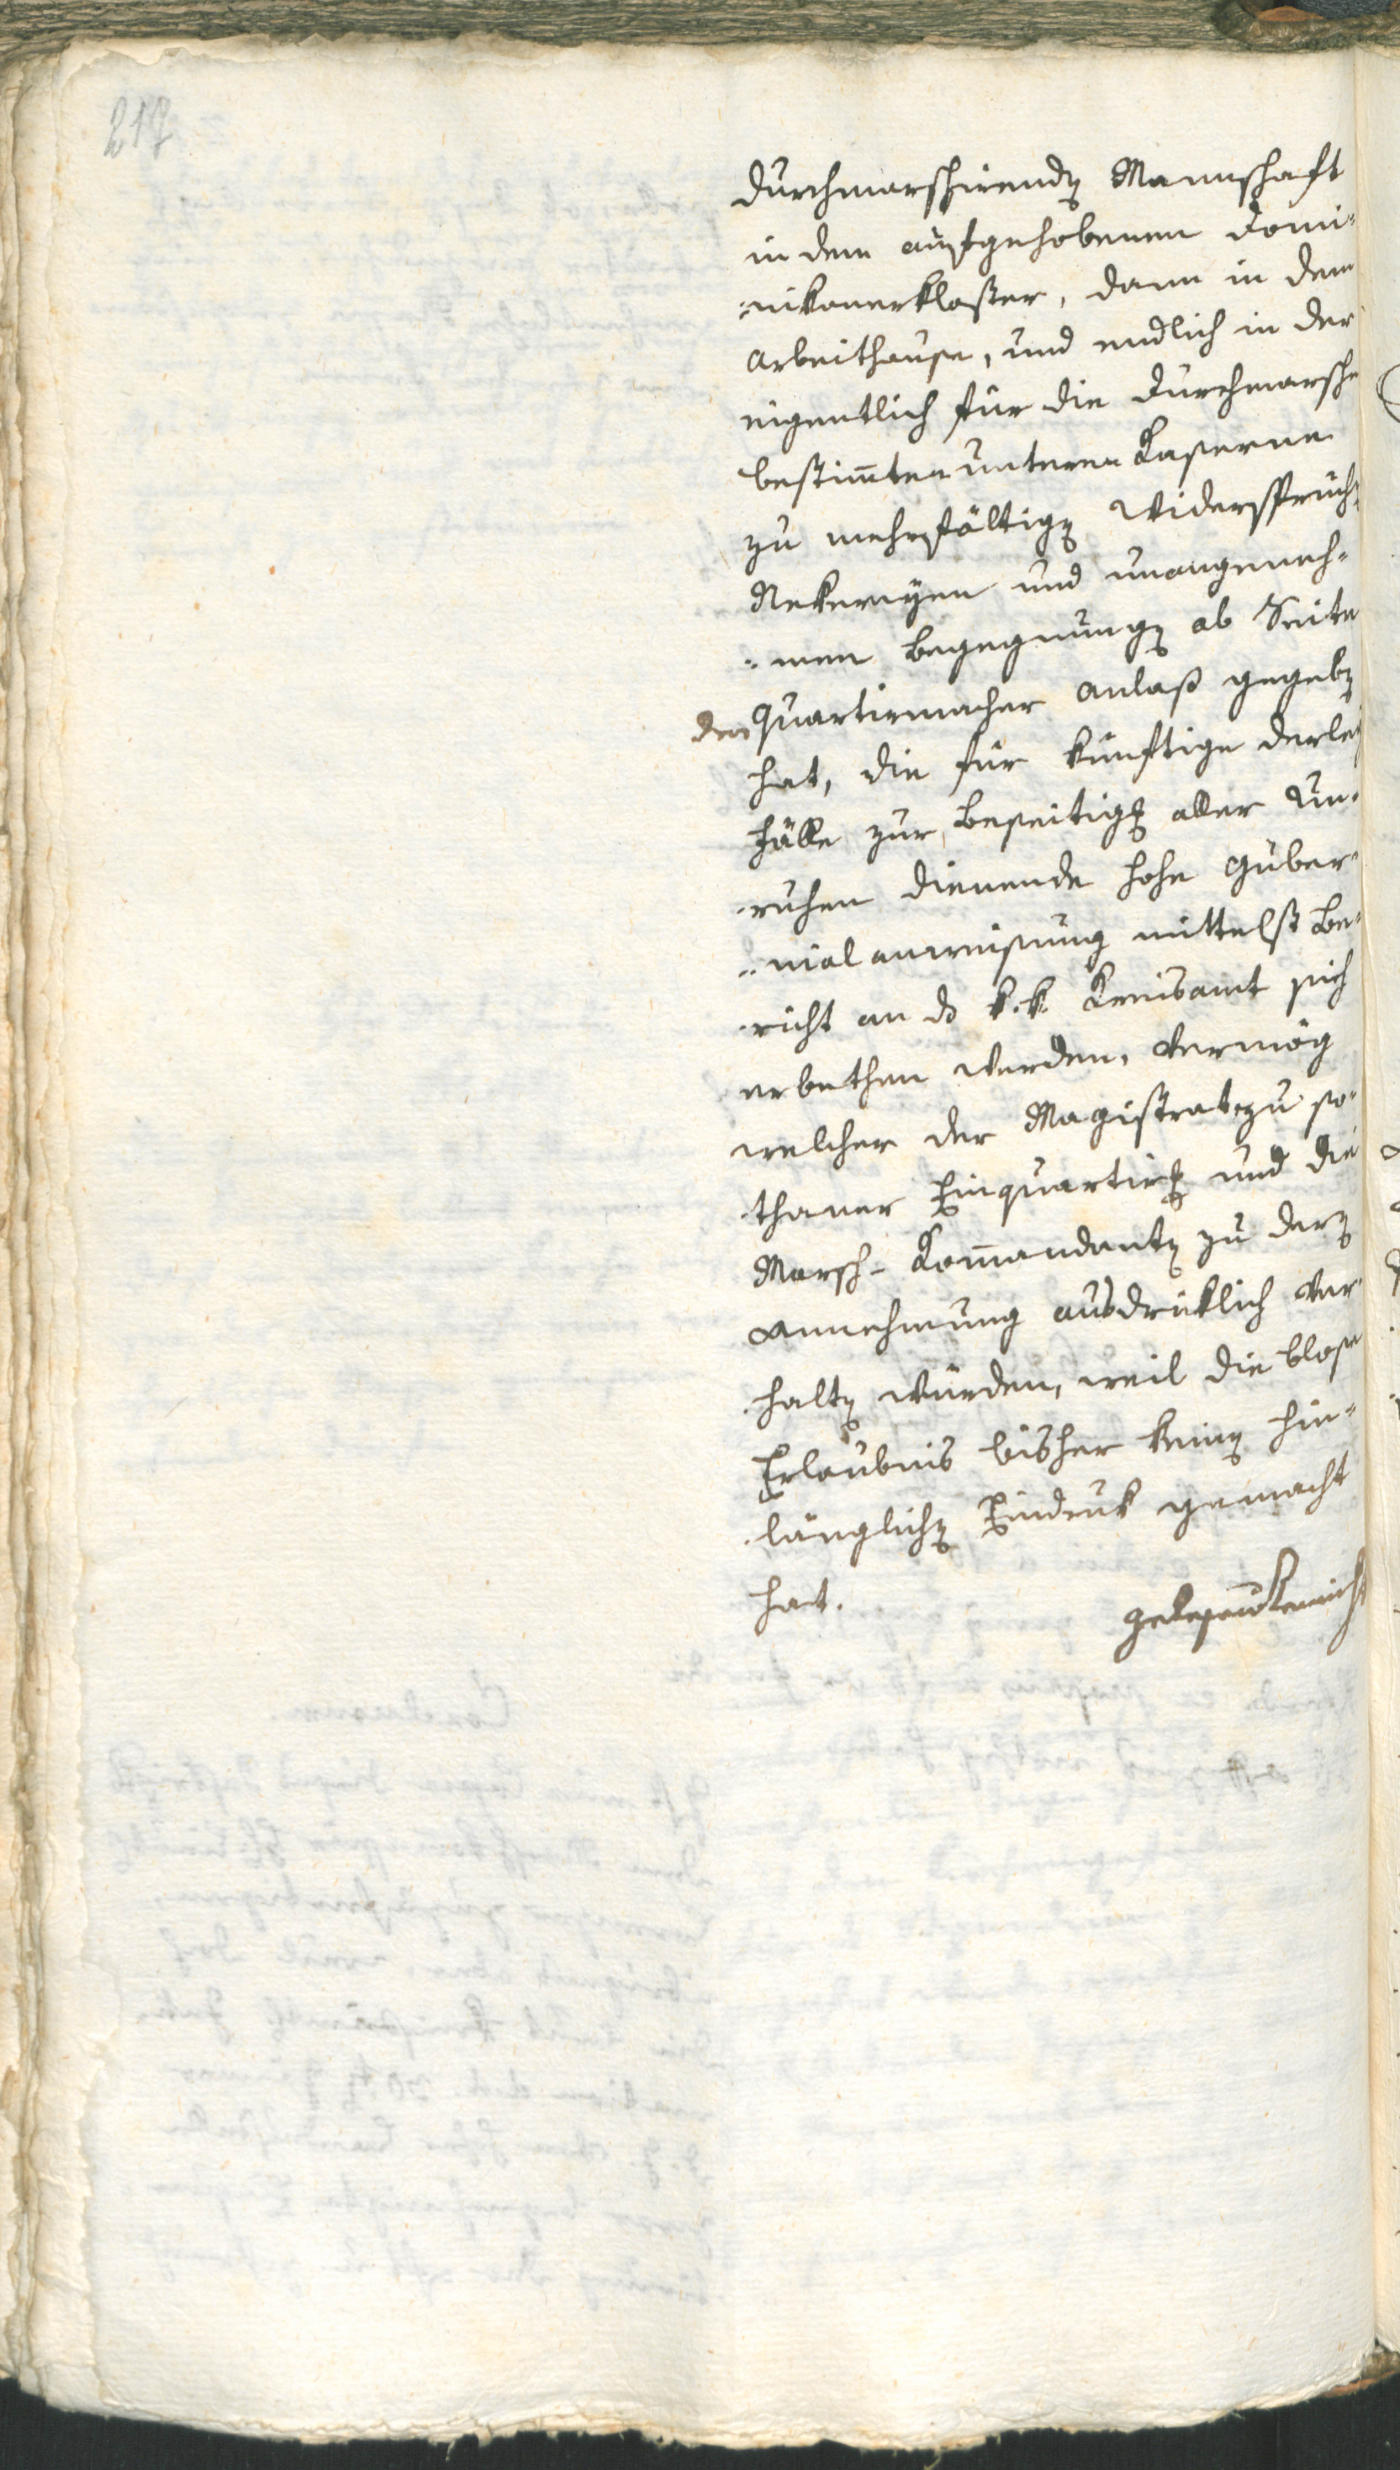 217
durchmarschirenden Mannschaft
in dem aufgehobenen Domi-
nikanerkloster, dann in dem
Arbeithause, und endlich in der
eigentlich für die Durchmarsche
bestimten unteren Kaserne
zu mehrfältigen Widersprüch
Nekereyen und unangeneh-
men Begegnungen ab Seite
der Quartirmacher Anlaß gegeben
hat, die für künftige derley
Fälle zur Beseitigung aller Un-
ruhen dienende hohe Guber-
nialanweisung mittelst Be-
richt an das k.k. Kreisamt sich
erbethen werden, vermög
welcher der Magistrat zu so-
thaner Einquartirung und die
Marsch-Komandanten zu deren
Annehmung ausdrüklich ver-
halten würden, weil die blose
Erlaubnis bisher keinen hin-
länglichen Eindruk gemacht
hat.